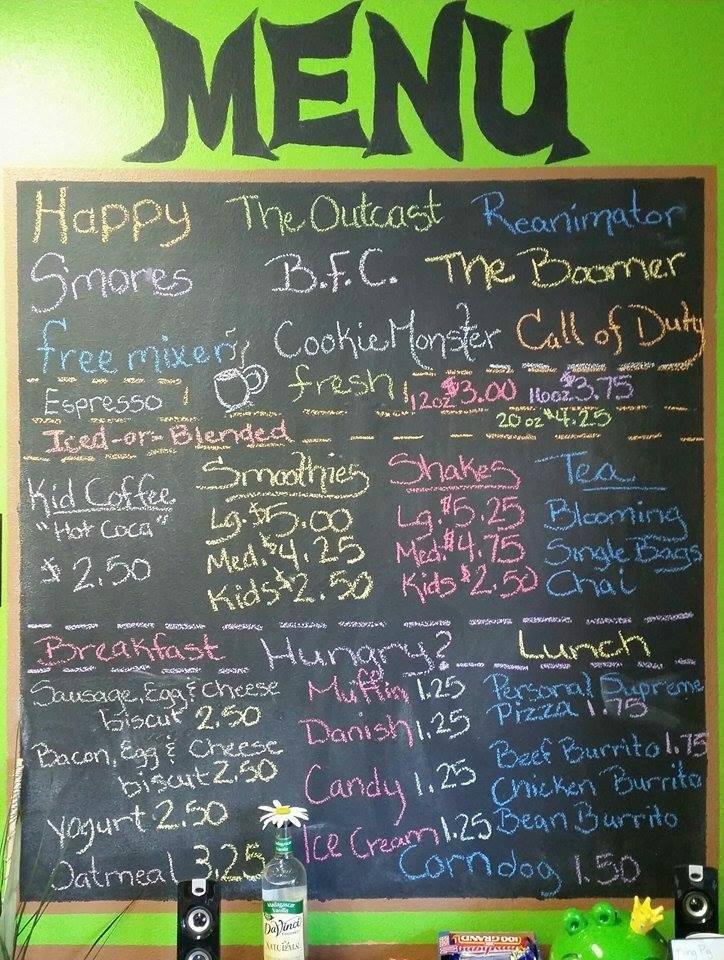 MENU
Happy The Outcast Reanimator
S'mores B.F.C. The Boomer
free mixer CookieMonster Call of Duty
Espresso fresh 12oz $3.00 16oz $3.75
20 oz $4.25
Iced-or-Blended
Kid Coffee
"Hot Coca"
$2.50
Smoothies
Lg. $5.00
Med. $4.25
Kids $2.50
Shakes
Lg. $5.25
Med. $4.75
Kids $2.50
Tea
Blooming
Single Bags
Chai
Breakfast Hungry? Lunch
Sausage, Egg & Cheese
biscut 2.50
Bacon, Egg & Cheese
biscut 2.50
Yogurt 2.50
Oatmeal 3.25
Muffin 1.25
Danish 1.25
Candy 1.25
Ice Cream 1.25
Personal Supreme
Pizza 1.75
Beef Burrito 1.75
Chicken Burrito
Bean Burrito
Corndog 1.50
Madagascar
Vanilla
DaVinci
GOURMET
NATURALS
100 GRAND
King Pig